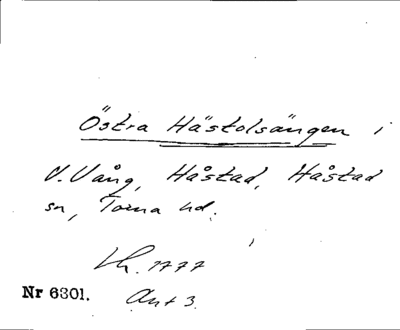 Östra Hästolsängen i
V. Vång, Håstad, Håstad
sn, Torna hd.
Lh. 1777
Nr 6301. Akt 3.